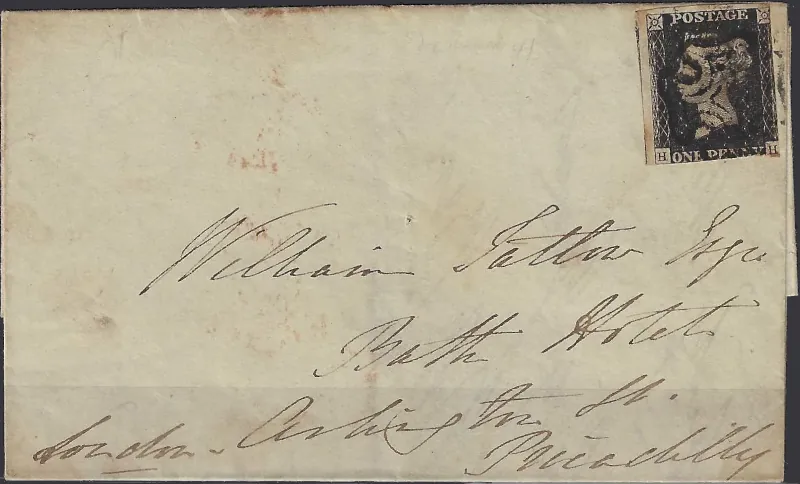 POSTAGE
H ONE PENNY H
William Tatlow Esqre
Bath Hotel
Arlington St.
Piccadilly
London